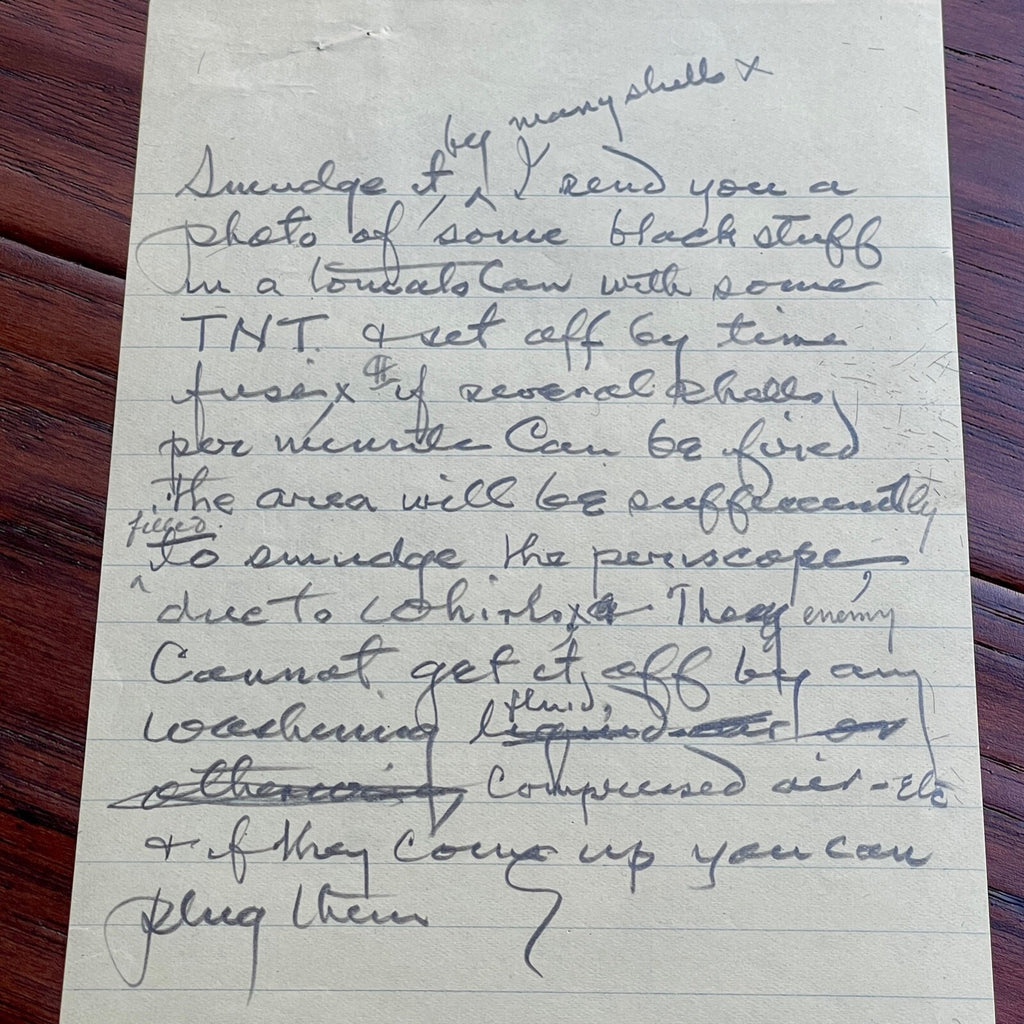 by many shells x
Smudge it ^ I send you a
photo of some black stuff
in a tomato Can with some
TNT. & set off by time
fuse x # if several shells
per minute Can be fired
the area will be sufficiently
filled
^ to smudge the periscope
due to whirls x They enemy
Cannot get it off by any
fluid,
washening liquid or
otherwise Compressed air - Etc
& if they come up you can
plug them